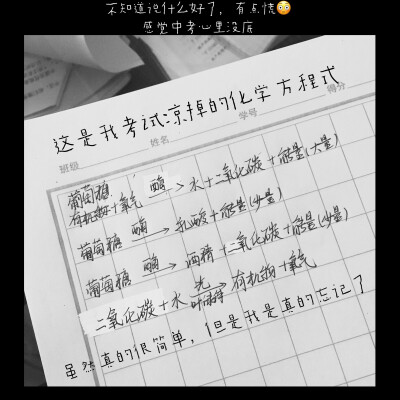 不知道说什么好了，有点慌😳
感觉中考心里没底
这是我考试凉掉的化学方程式
班级 姓名 学号 得分
葡萄糖
有机物+氧气 酶→ 水+二氧化碳+能量(大量)
葡萄糖 酶→ 乳酸+能量(少量)
葡萄糖 酶→ 酒精+二氧化碳+能量(少量)
二氧化碳+水 光 叶绿体→ 有机物+氧气
虽然真的很简单，但是我是真的忘记了